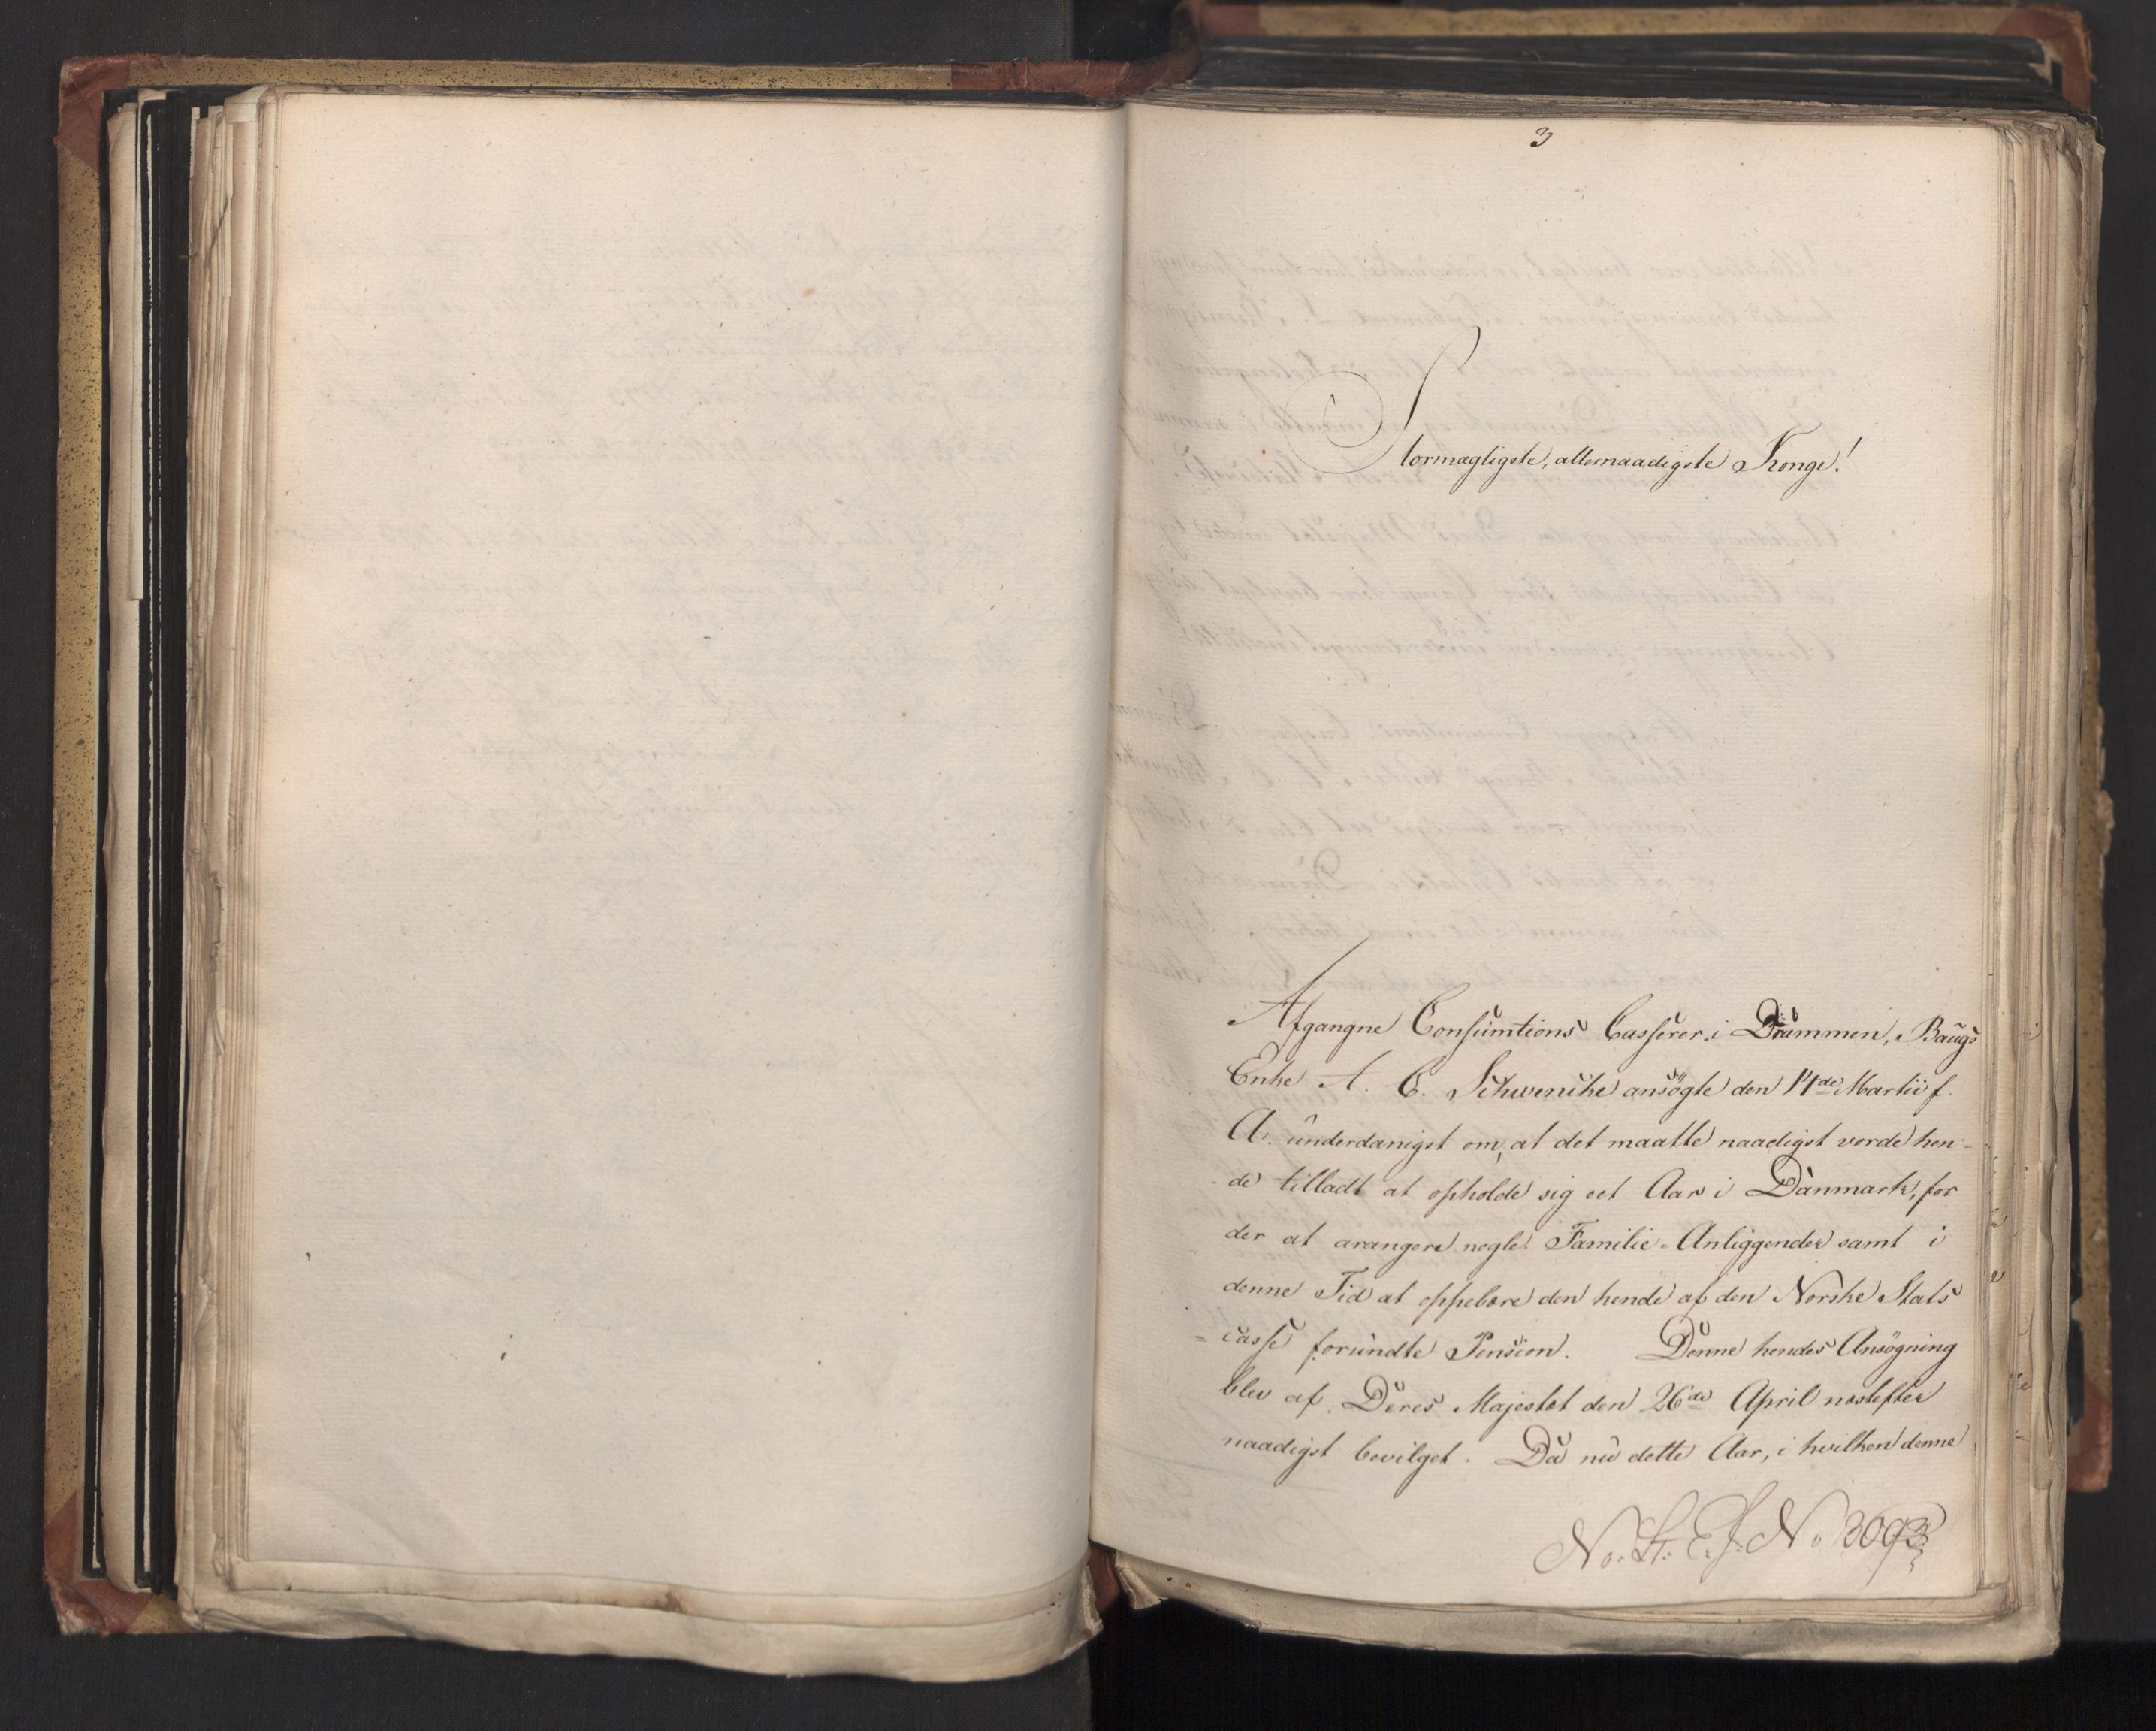 3
Stormægtigste, allernaadigste Konge!
Afgangne Consumtions Casserer i Drammen, Baugs
Enke A. C. Schwencke ansøgte den 14de Martii f.
A. underdanigst om, at det maatte naadigst vorde hen-
-de tilladt at opholde sig eet Aar i Danmark, for
der at arangere nogle Familie-Anliggender samt i
denne Tid at oppebære den hende af den Norske Stats
-casse forundte Pension. Denne hendes Ansøgning
blev af Deres Majestæt den 26de April næstefter
naadigst bevilget. Da nu dette Aar, i hvilken denne